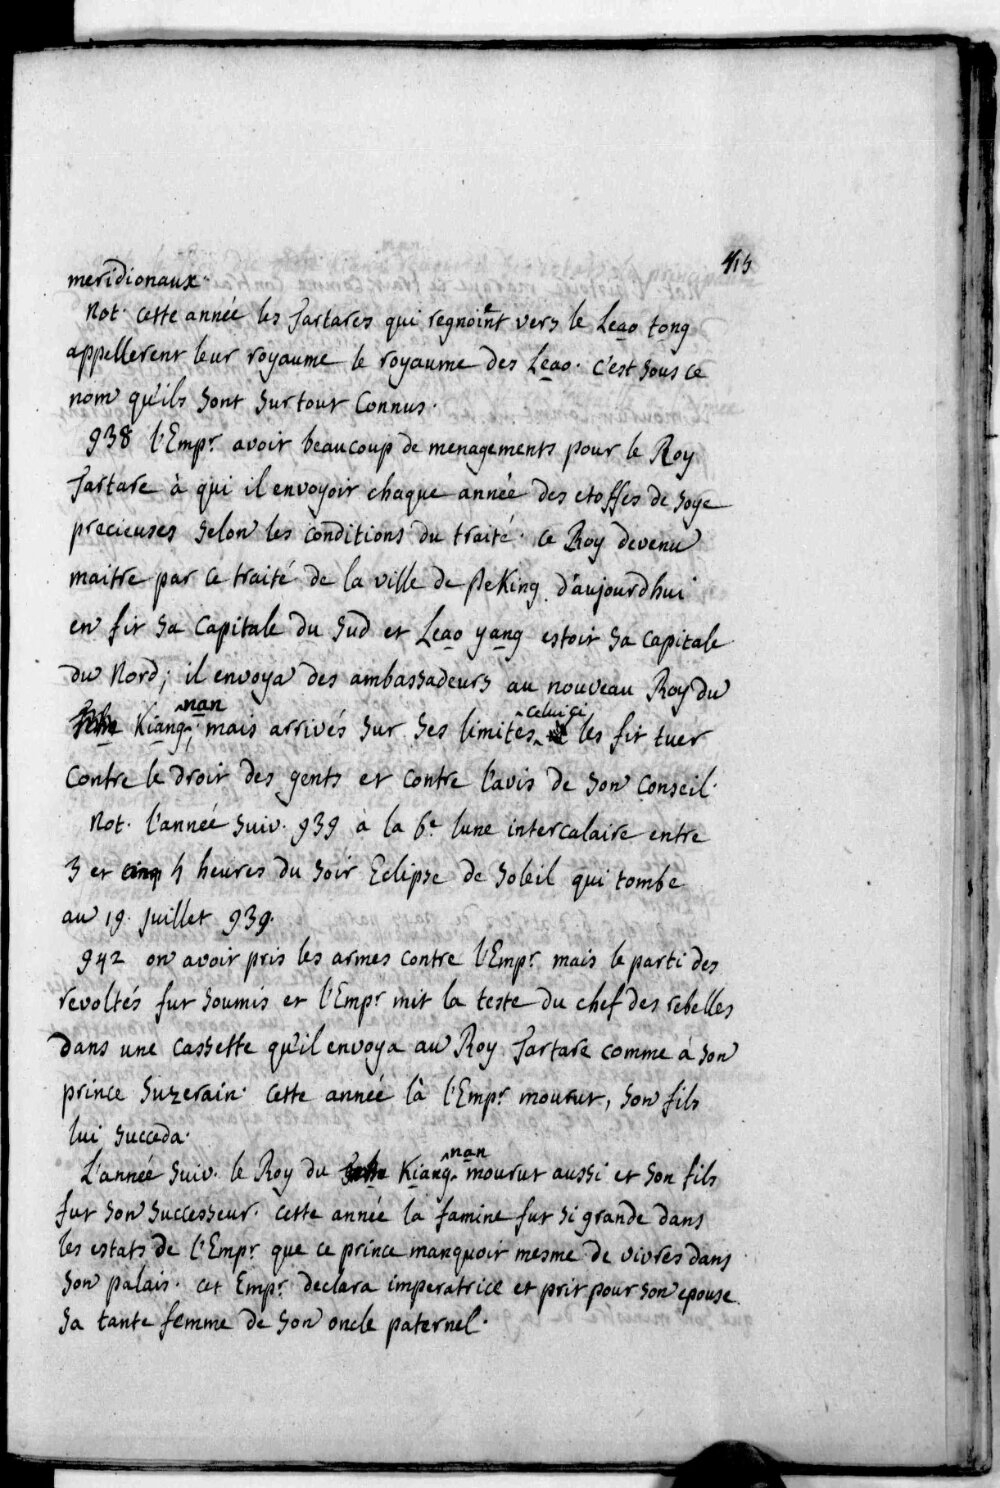 415
meridionaux.
Not. cette année les Tartares qui regnoient vers le Leao tong
appellerent leur royaume le royaume des Leao. c'est sous ce
nom qu'ils sont surtout connus.
938 l'Empr. avoit beaucoup de menagements pour le Roy
Tartare à qui il envoyoit chaque année des etoffes de soye
precieuses selon les conditions du traité. ce Roy devenu
maitre par ce traité de la ville de PeKing d'aujourd'hui
en fit sa capitale du Sud et Leao yang estoit sa capitale
du Nord; il envoya des ambassadeurs au nouveau Roy du
Kiang nan; mais arrivés sur ses limites celui ci les fit tuer
contre le droit des gents et contre l'avis de son conseil.
Not. l'année suiv. 939 à la 6e lune intercalaire entre
3 et cinq 4 heures du soir Eclipse de Soleil qui tombe
au 19. juillet 939.
942 on avoit pris les armes contre l'Empr. mais le parti des
revoltés fut soumis et l'Empr. mit la teste du chef des rebelles
dans une cassette qu'il envoya au Roy Tartare comme à son
prince suzerain. cette année là l'Empr. mourut, son fils
lui succeda.
L'année suiv. le Roy du Kiang nan mourut aussi et son fils
fut son successeur. cette année la famine fut si grande dans
les estats de l'Empr. que ce prince manquoit mesme de vivres dans
son palais. cet Empr. declara imperatrice et prit pour son epouse
sa tante femme de son oncle paternel.